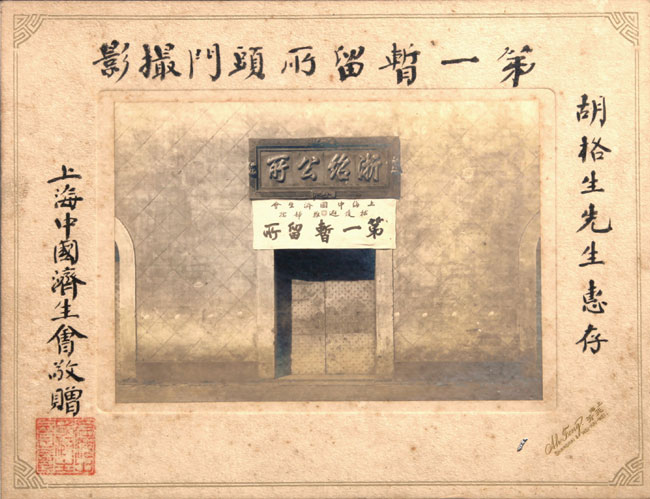 第一暫留所頭門撮影
胡格生先生惠存
浙紹公所
上海中國濟生會
第一暫留所
上海中國濟生會敬贈
Ah Fong